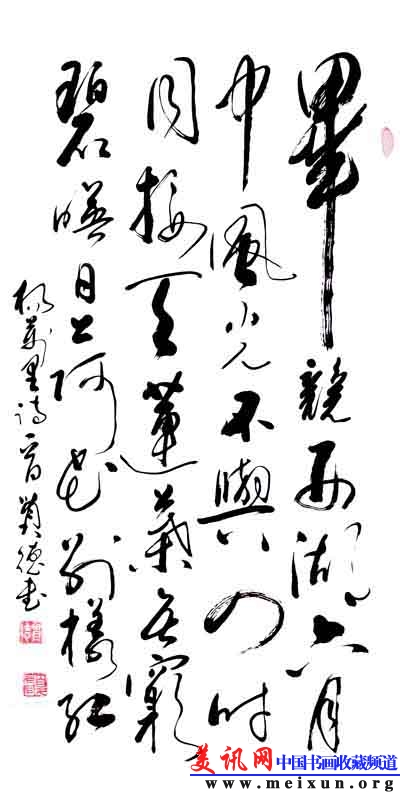 畢競西湖六月
中風光不與四时
同接天蓮葉无窮
碧暎日荷花别樣红
楊萬里诗 德书
美讯网中国书画收藏频道
www.meixun.org